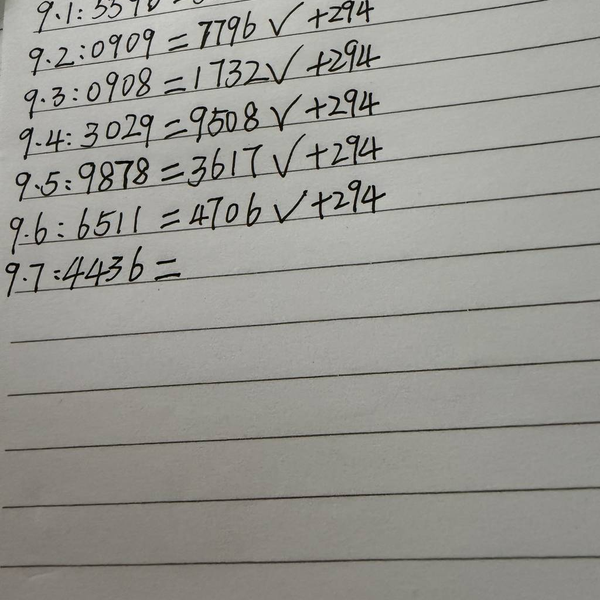 9.1:5590
9.2:0909=7796√+294
9.3:0908=1732√+294
9.4:3029=9508√+294
9.5:9878=3617√+294
9.6:6511=4706√+294
9.7:4436=